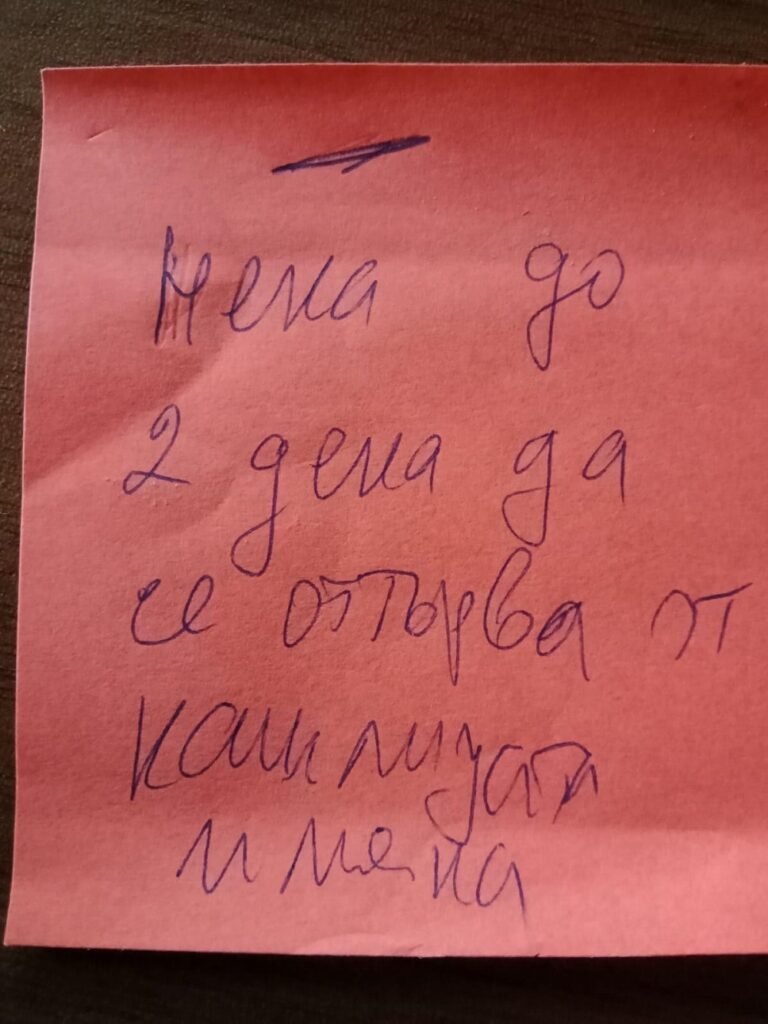 Нека до
2 дена да
се отърва от
кашлицата
и мека